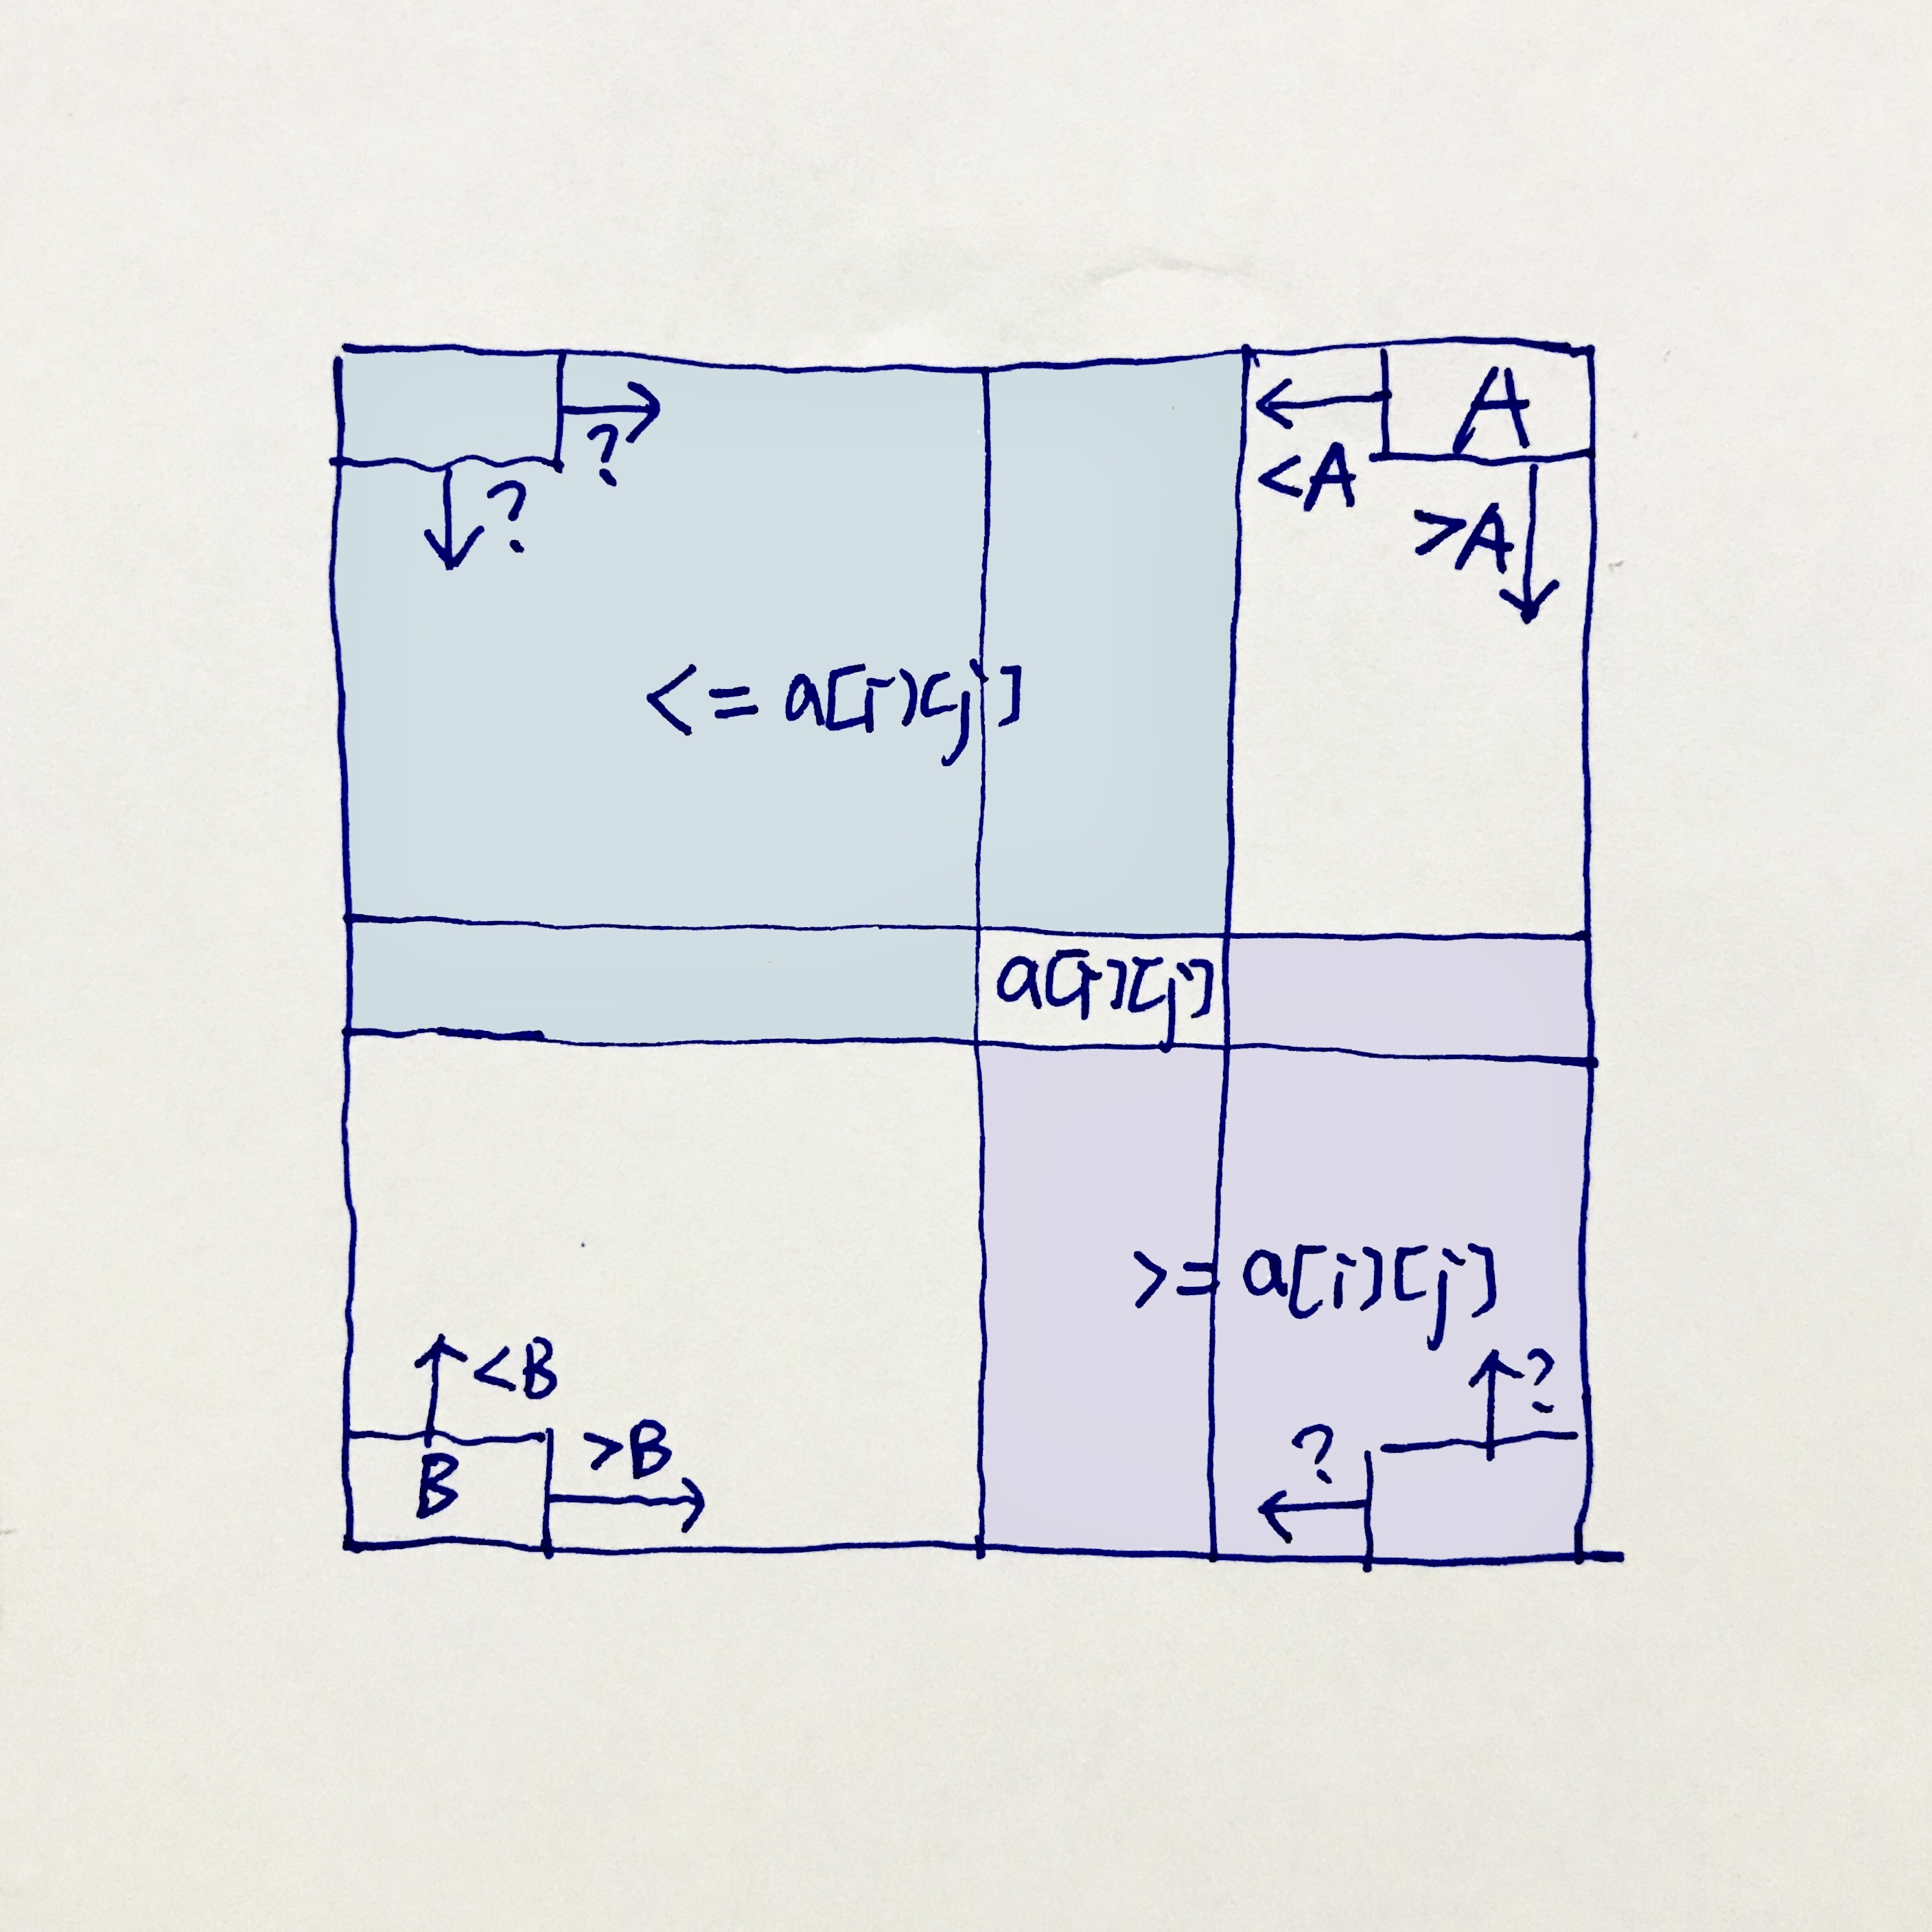 A
?
<A
?
>A
<= a[i][j]
a[i][j]
>= a[i][j]
<B
?
>B
?
B